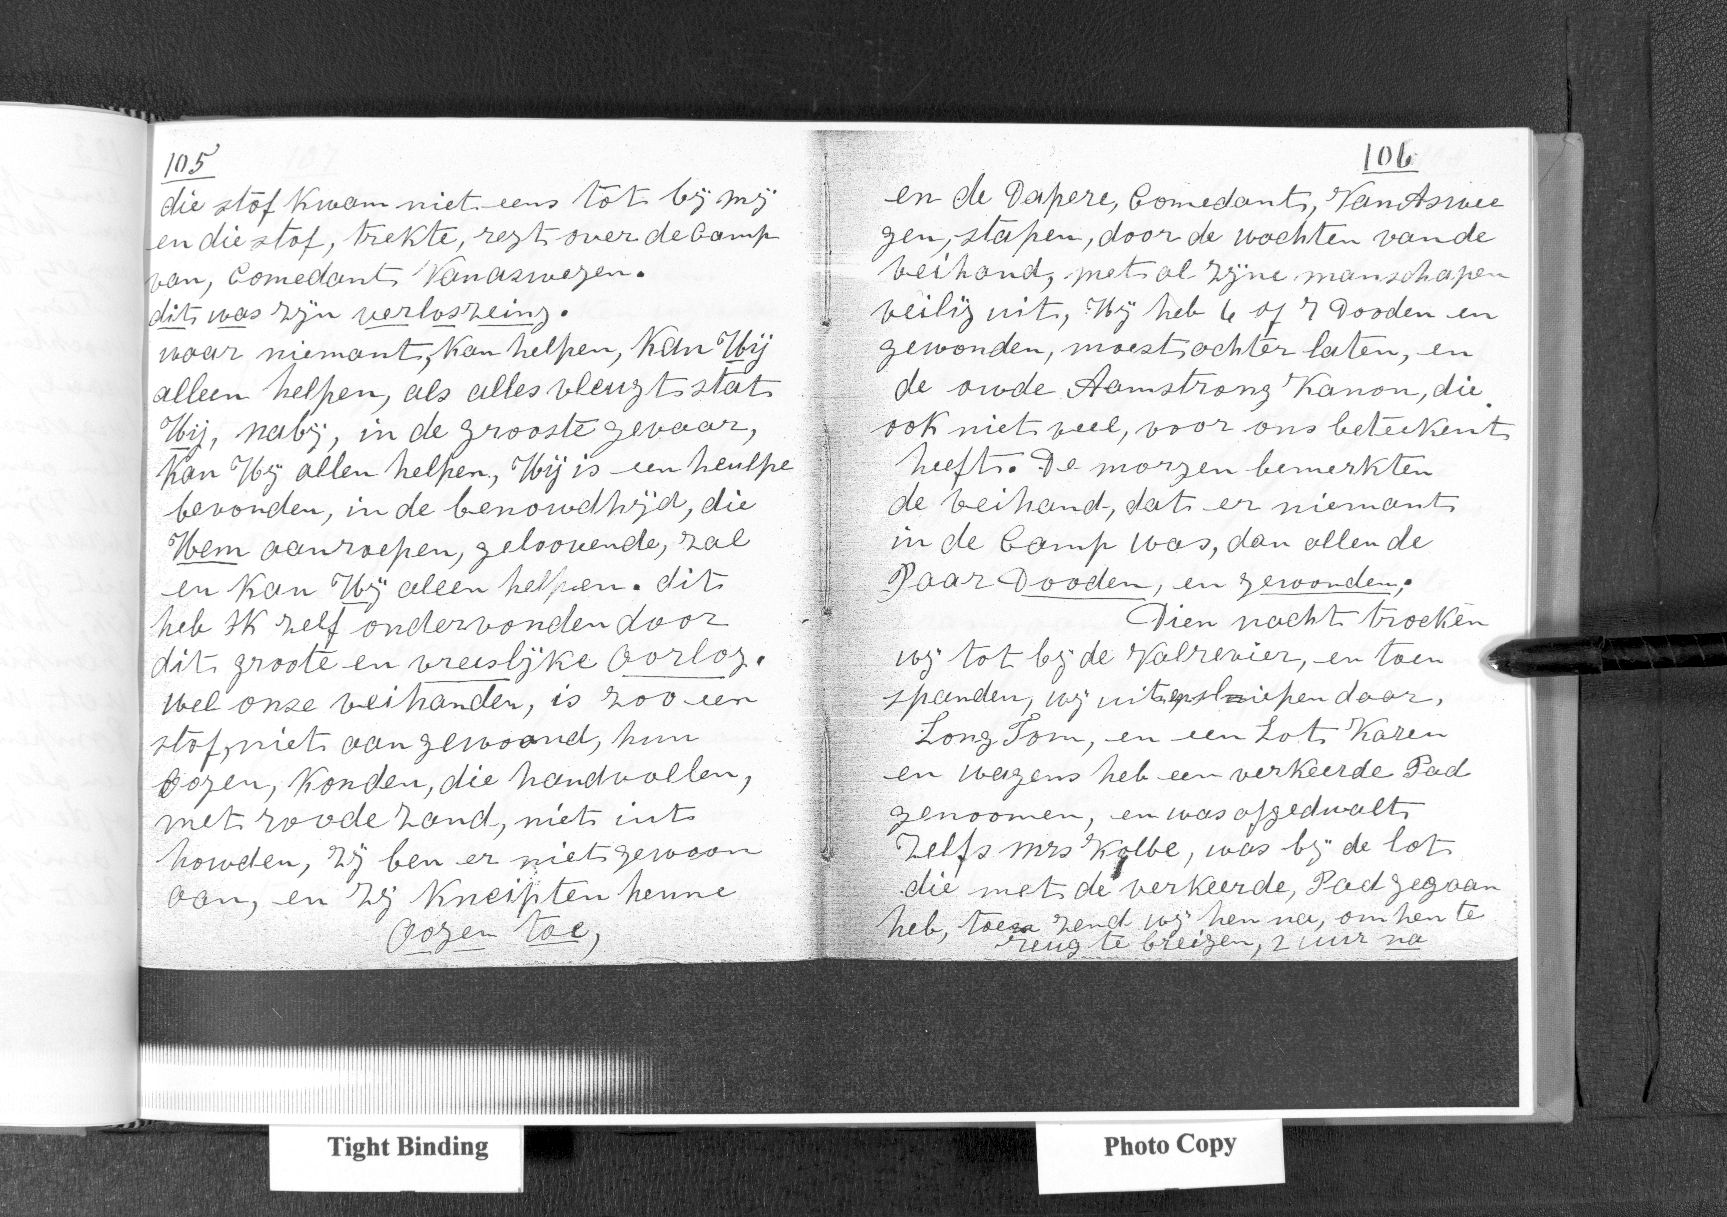 105
die stof kwam niet eens tot bij mij
en die stof, trekte, regt over de Camp
van, Comedant Vanaswegen.
dit was zijn verloszeing.
waar niemant, kan helpen, kan Hij
alleen helpen, als alles vleugt stat
Hij, nabij, in de grooste gevaar,
kan Hij allen helpen, Hij is een heulpe
bevonden, in de benowdhijd, die
Hem aanroepen, geloovende, zal
en kan Hij aleen helpen. dit
heb Ik zelf ondervonden door
dit groote en vreeslijke Oorlog.
wel onze veihanden, is zoo een
stof, niet aan gewoond, hun
Oogen, konden, die handvollen,
met roode zand, niet int
howden, zij ben er niet gewoon
aan, en zij kneipten henne
Oogen toe,
106
en de Dapere, Comedant, VanAswee
gen, stapen, door de wachten van de
veihand, met al zijne manschapen
veilig uit, Hij heb 6 of 7 Dooden en
gewonden, moest achter laten, en
de owde Aamstrong Kanon, die
ook niet veel, voor ons beteekent
heeft. De morgen bemerkten
de veihand, dat er niemant
in de Camp was, dan allen de
Paar Dooden, en gewonden.
Dien nacht trocken
wij tot bij de Valrevier, en toen
spanden, wij uit en sliepen daar,
Long Tom, en een Lot Karen
en wagens heb een verkeerde Pad
genoomen, en was afgedwalt
Zelfs Mrs Kolbe, was bij de lot
die met de verkeerde, Pad gegaan
heb, toen zend wij hen na, om hen te
reug te breigen, 2 uur na
Tight Binding
Photo Copy